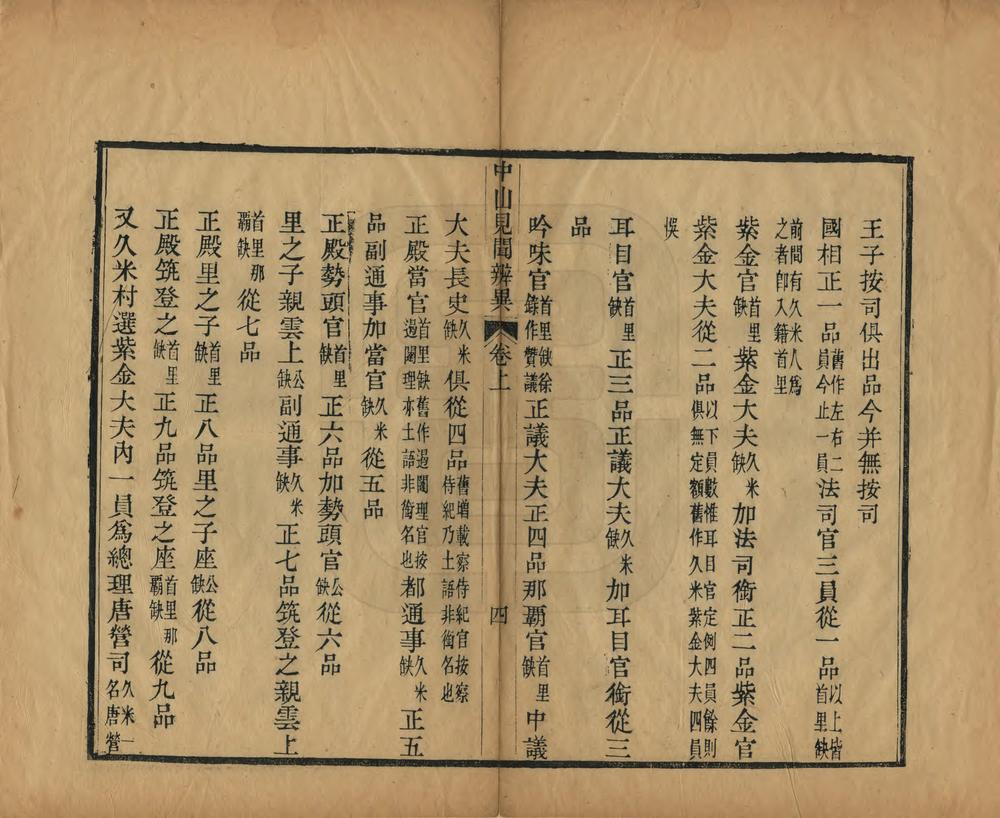 王子按司俱出品今并無按司
國相正一品舊作左右二員今止一員法司官三員從一品以上皆首里缺
前間有久米人爲之者卽入籍首里
紫金官首里缺紫金大夫久米缺加法司銜正二品紫金官
紫金大夫從二品以下員數惟耳目官定例四員餘則俱無定額舊作久米紫金大夫四員
悞
耳目官首里缺正三品正議大夫久米缺加耳目官銜從三
品
吟味官首里缺徐錄作贊議正議大夫正四品那覇官首里缺中議
中山見聞辨異 卷上 四
大夫長史久米缺俱從四品舊增載察侍紀官按察侍紀乃土語非銜名也
正殿當官首里缺舊作遏闥理官按遏闥理亦土語非銜名也都通事久米缺正五
品副通事加當官久米缺從五品
正殿勢頭官首里缺正六品加勢頭官公缺從六品
里之子親雲上公缺副通事久米缺正七品筑登之親雲上
首里那覇缺從七品
正殿里之子首里缺正八品里之子座公缺從八品
正殿筑登之首里缺正九品筑登之座首里那覇缺從九品
又久米村選紫金大夫內一員爲總理唐營司久米一名唐營